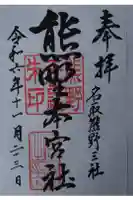 奉拝
名取熊野三社
熊野本宮社
令和六年十一月二三日